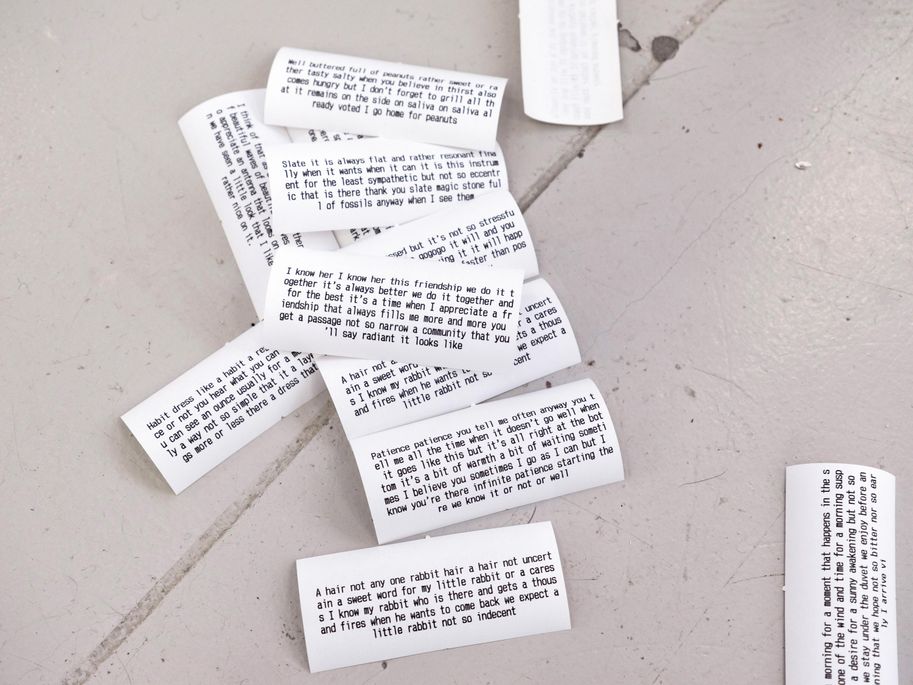 Well buttered full of peanuts rather sweet or ra
ther tasty salty when you believe in thirst also
comes hungry but I don't forget to grill all th
at it remains on the side on saliva on saliva al
ready voted I go home for peanuts
I think of that
f beautiful waves of beauti
o appreciate an antenna that looms on
n we have seen a little look that I like
rather nice on it.
Slate it is always flat and rather resonant fina
lly when it wants when it can it is this instrum
ent for the least sympathetic but not so eccentr
ic that is there thank you slate magic stone ful
l of fossils anyway when I see them
ssed but it's not so stressfu
gogogo it will and you
ng it it will happ
faster than pos
I know her I know her this friendship we do it t
ogether it's always better we do it together and
for the best it's a time when I appreciate a fr
iendship that always fills me more and more you
get a passage not so narrow a community that you
'll say radiant it looks like
Habit dress like a habit a re
ce or not you hear what you can
u can see an ounce usually for a m
ly a way not so simple that it a lay
gs more or less there a dress that
uncert
r a cares
ts a thous
we expect a
A hair not a
ain a sweet word
s I know my rabbit
and fires when he wants to
little rabbit not so
cent
Patience patience you tell me often anyway you t
ell me all the time when it doesn't go well when
it goes like this but it's all right at the bot
tom it's a bit of warmth a bit of waiting someti
mes I believe you sometimes I go as I can but I
know you're there infinite patience starting the
re we know it or not or well
A hair not any one rabbit hair a hair not uncert
ain a sweet word for my little rabbit or a cares
s I know my rabbit who is there and gets a thous
and fires when he wants to come back we expect a
little rabbit not so indecent
morning for a moment that happens in the s
one of the wind and time for a morning susp
a desire for a sunny awakening but not so
we stay under the duvet we enjoy before an
ning that we hope not so bitter nor so ear
ly I arrive vi